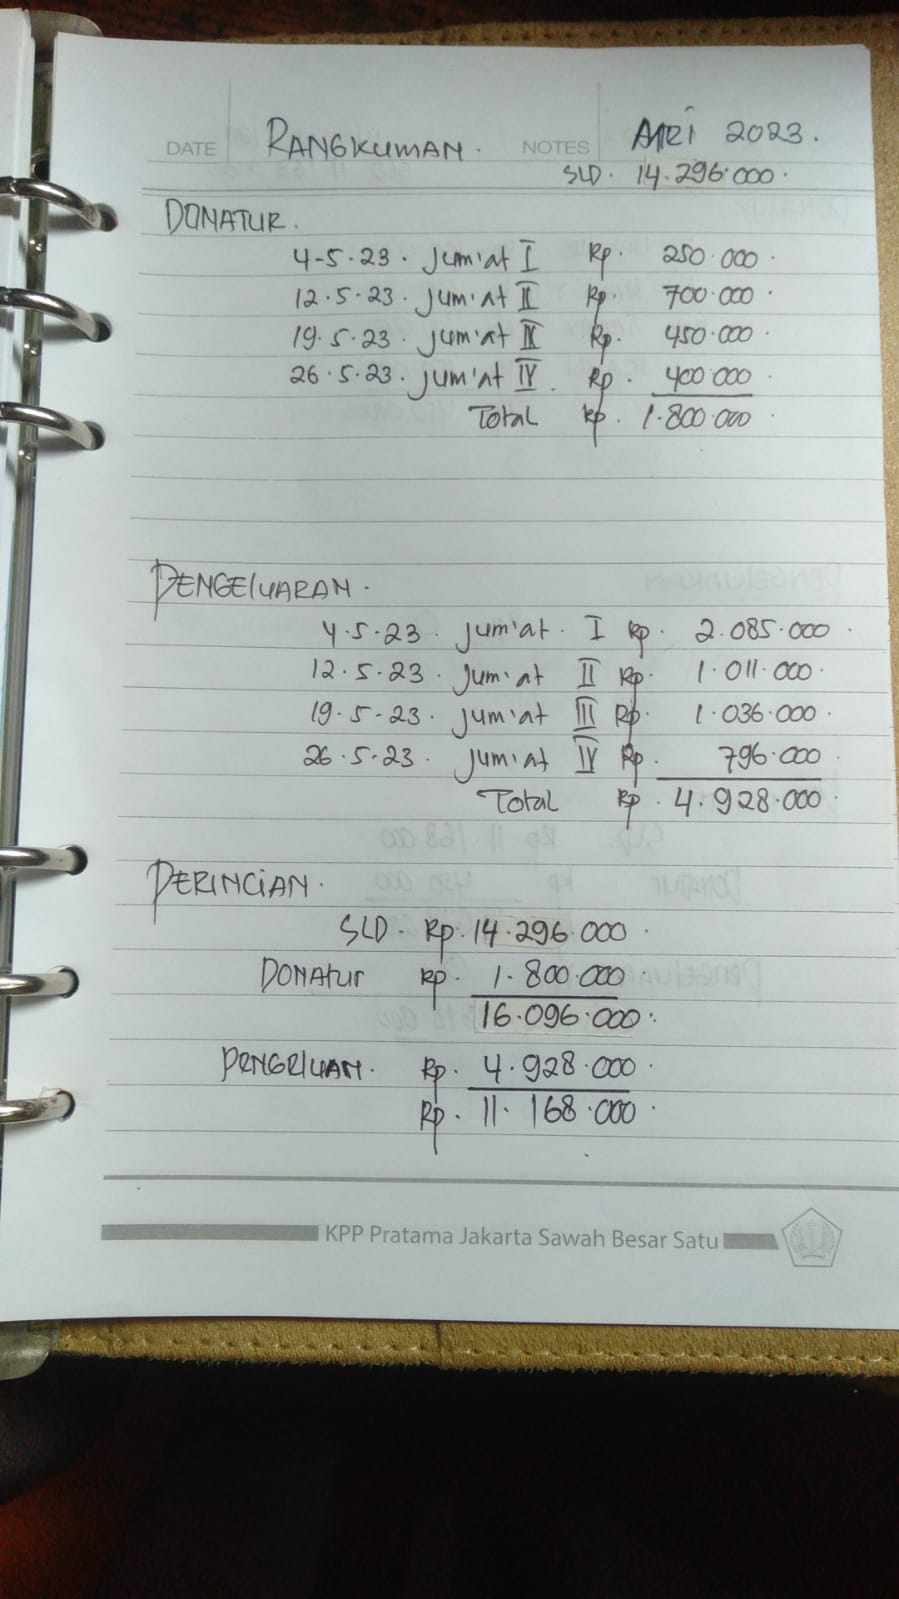 DATE RANGKUMAN. NOTES APRI 2023.
SLD. 14.296.000.
DONATUR.
4-5.23. Jum'at I Rp. 250.000.
12.5.23. Jum'at II Rp. 700.000.
19.5.23. Jum'at III Rp. 450.000.
26.5.23. Jum'at IV. Rp. 400.000.
Total Rp. 1.800.000.
PENGELUARAN.
4.5.23. Jum'at. I Rp. 2.085.000.
12.5.23. Jum'at II Rp. 1.011.000.
19.5-23. Jum'at III Rp. 1.036.000.
26.5.23. Jum'at IV Rp. 796.000
Total Rp. 4.928.000.
PERINCIAN.
SLD. Rp. 14.296.000.
DONATUR Rp. 1.800.000.
16.096.000.
Rp. 4.928.000.
Rp. 11.168.000.
KPP Pratama Jakarta Sawah Besar Satu